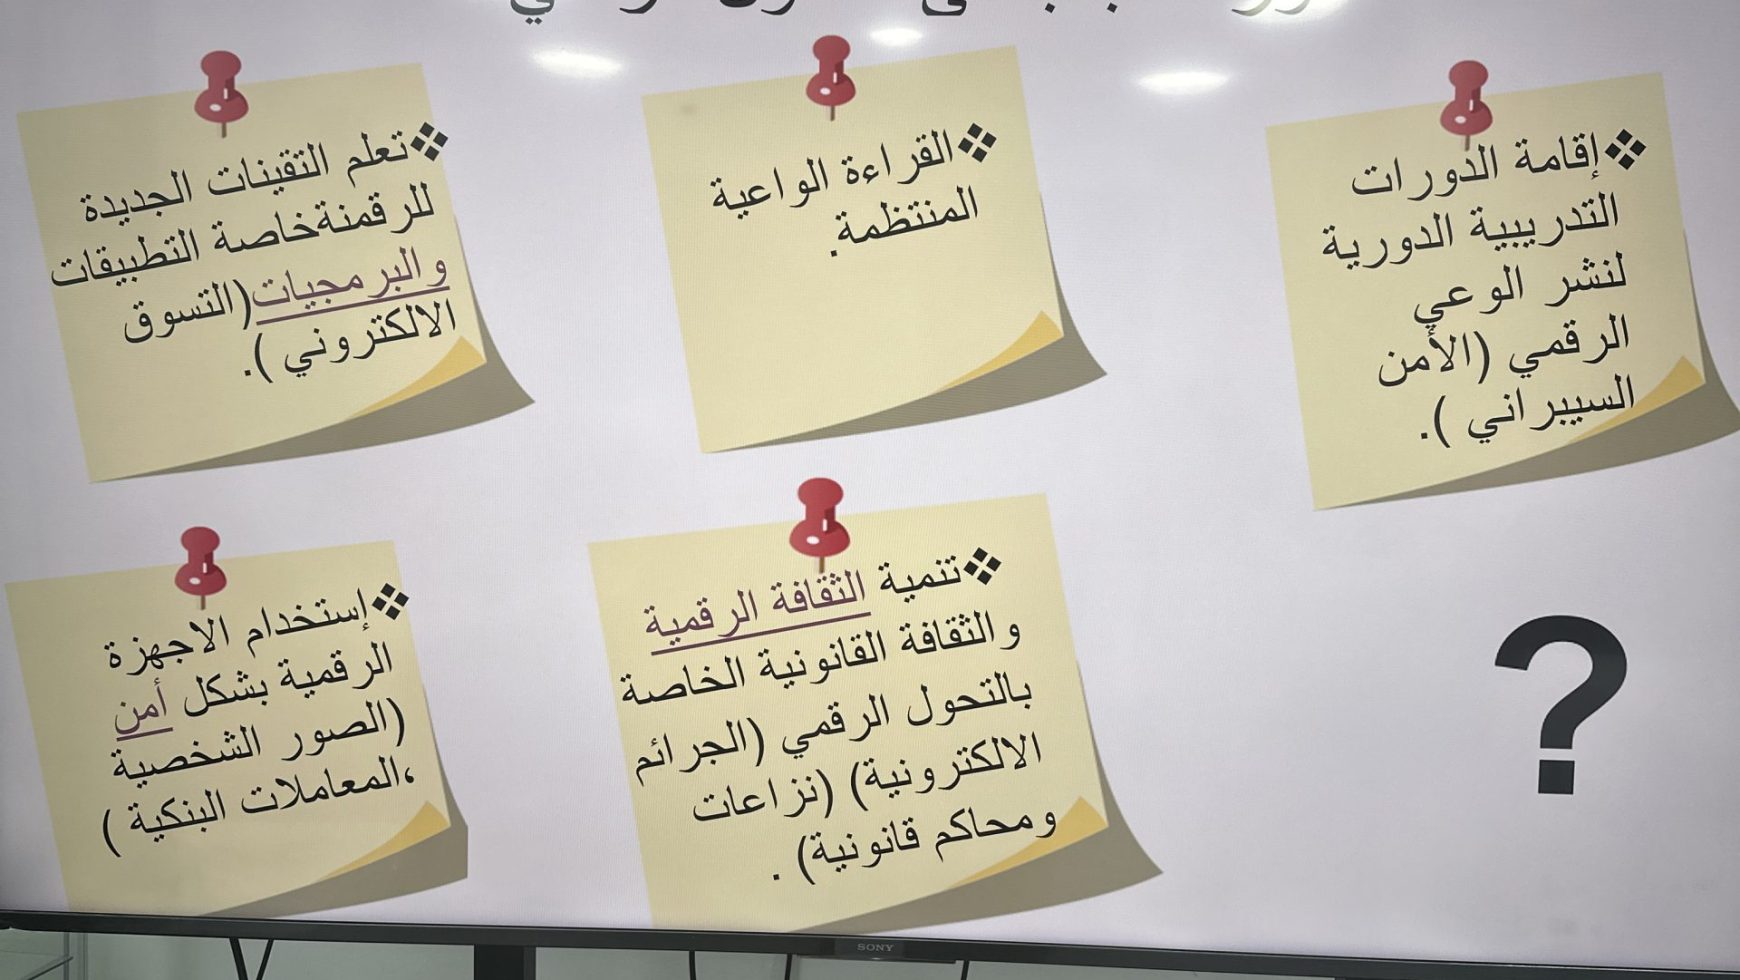 ❖إقامة الدورات
التدريبية الدورية
لنشر الوعي
الرقمي (الأمن
السيبراني ).
❖القراءة الواعية
المنتظمة.
❖تعلم التقينات الجديدة
للرقمنةخاصة التطبيقات
والبرمجيات(التسوق
الالكتروني ).
?
❖تنمية الثقافة الرقمية
والثقافة القانونية الخاصة
بالتحول الرقمي (الجرائم
الالكترونية) (نزاعات
ومحاكم قانونية) .
❖إستخدام الاجهزة
الرقمية بشكل أمن
(الصور الشخصية
،المعاملات البنكية )
SONY